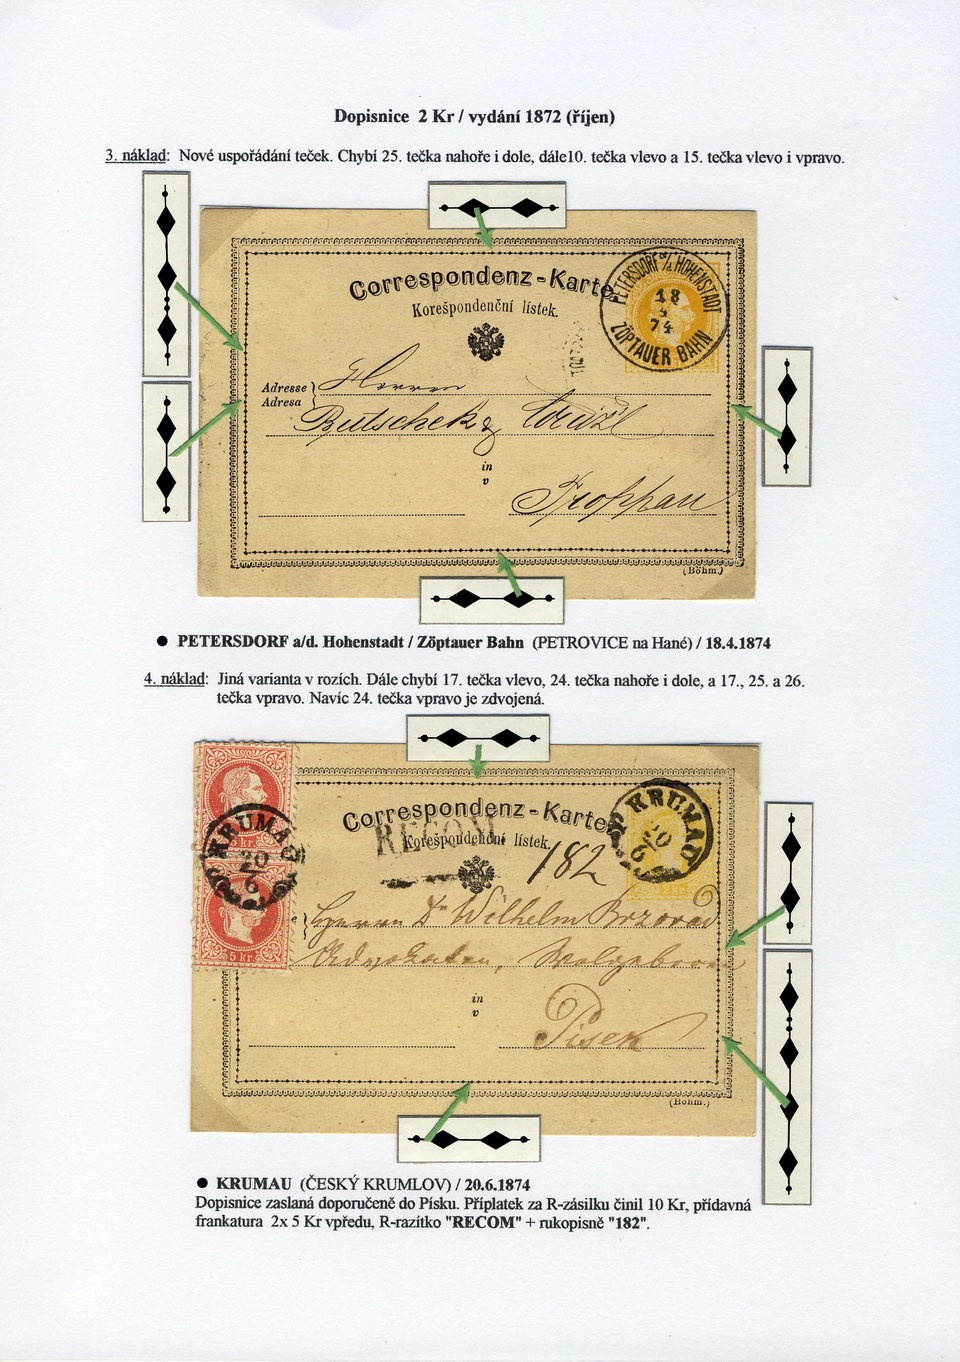 Dopisnice 2 Kr / vydání 1872 (říjen)
3. náklad: Nové uspořádání teček. Chybí 25. tečka nahoře i dole, dále10. tečka vlevo a 15. tečka vlevo i vpravo.
Correspondenz-Karte
Korešpondenční lístek.
PETERSDORF a/d HOHENSTADT
18
4
74
ZÖPTAUER BAHN
Adresse
Adresa
Herrn
in
v
Troppau
(Böhm.)
● PETERSDORF a/d. Hohenstadt / Zöptauer Bahn (PETROVICE na Hané) / 18.4.1874
4. náklad: Jiná varianta v rozích. Dále chybí 17. tečka vlevo, 24. tečka nahoře i dole, a 17., 25. a 26.
tečka vpravo. Navíc 24. tečka vpravo je zdvojená.
Correspondenz-Karte
Korešpondenční lístek.
RECOM
182
KRUMAU
20
6
5 kr.
KRUMAU
20
6
5 kr.
Herrn Dr Wilhelm
in
v
Pisek
(Böhm.)
● KRUMAU (ČESKÝ KRUMLOV) / 20.6.1874
Dopisnice zaslaná doporučeně do Písku. Příplatek za R-zásilku činil 10 Kr, přídavná
frankatura 2x 5 Kr vpředu, R-razítko "RECOM" + rukopisně "182".